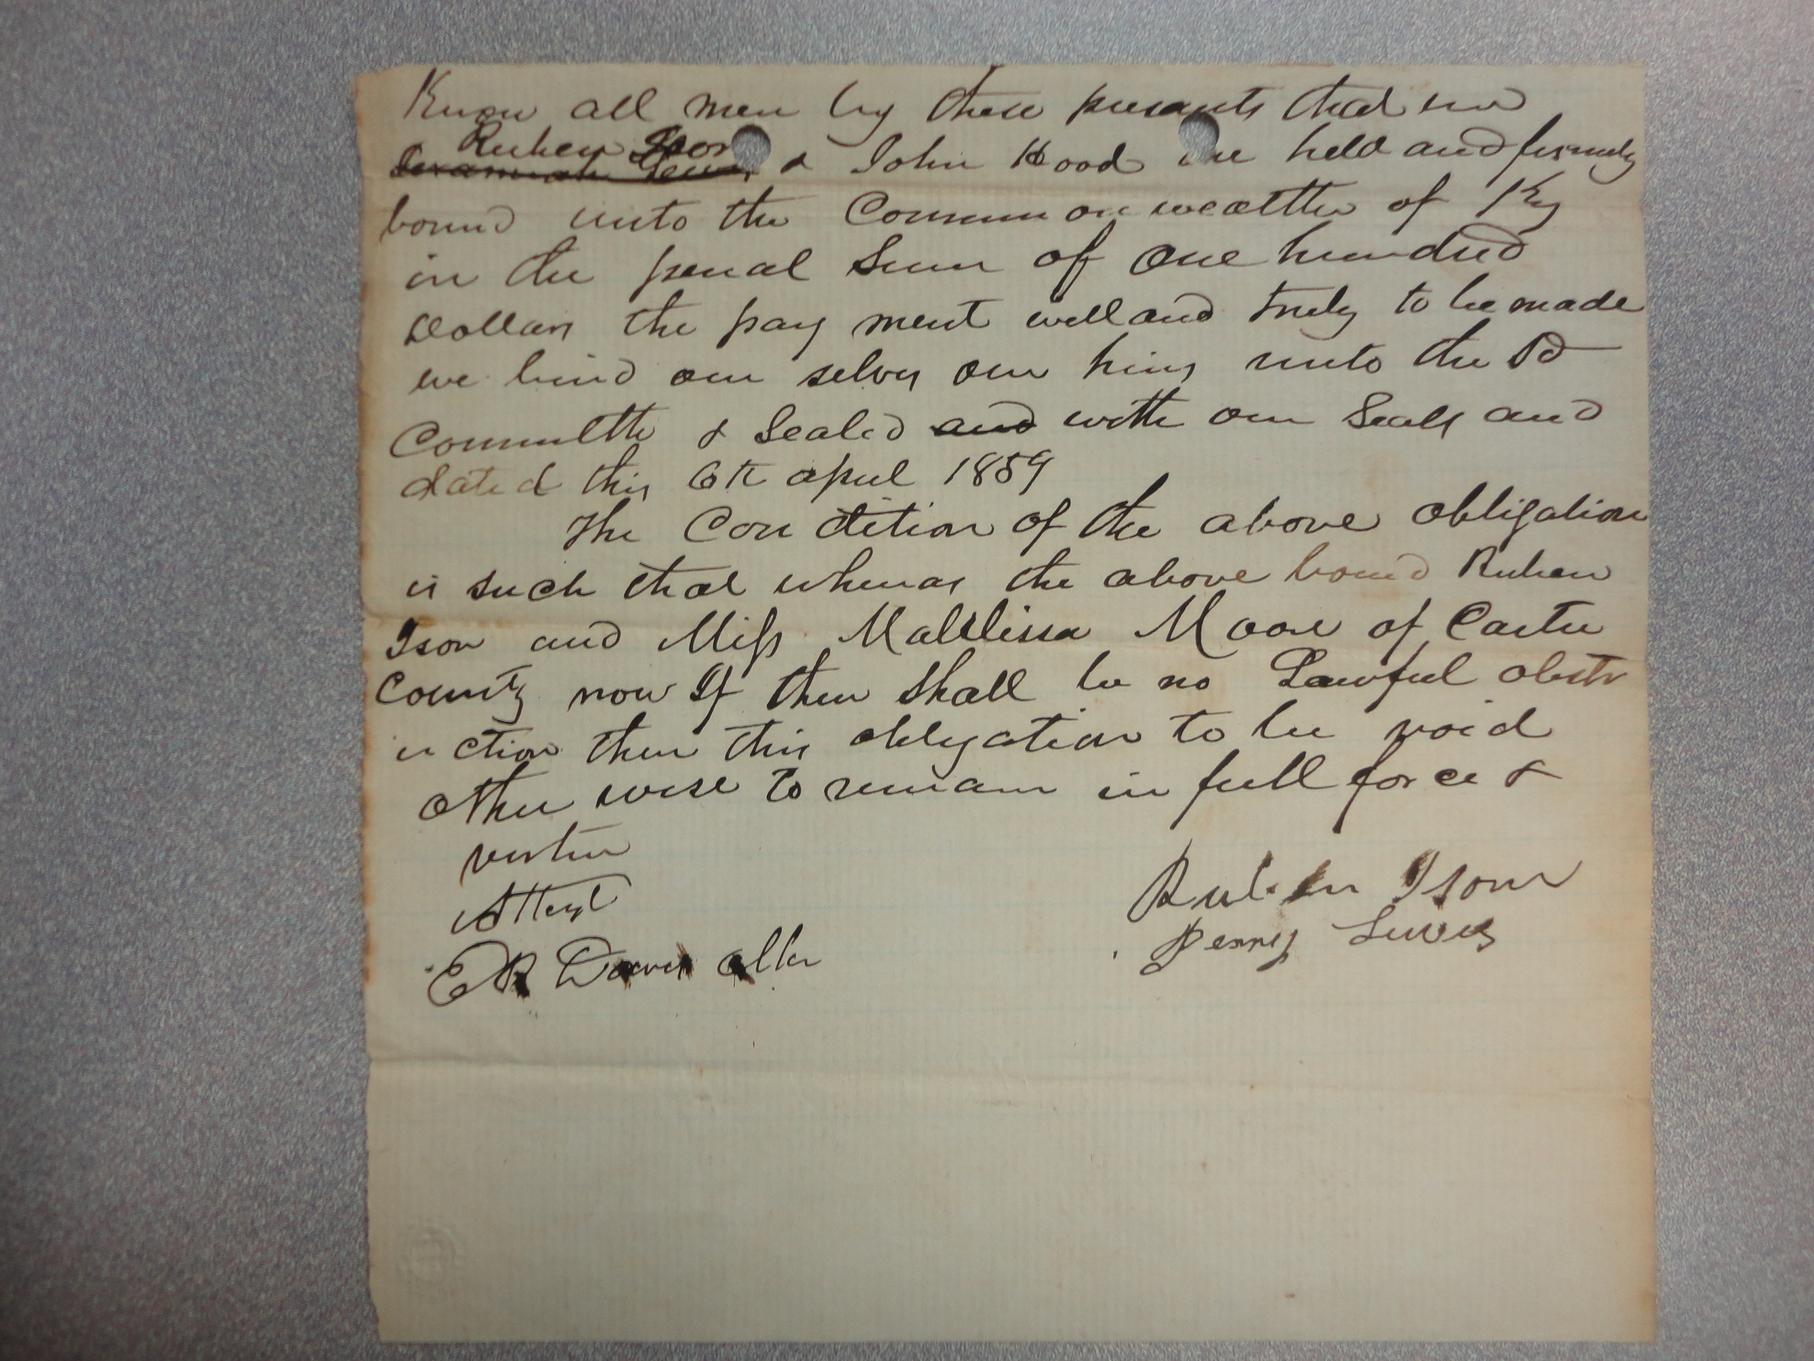 Know all men by these presents that we
Ruben Ison
& John Hood are held and firmely
bound unto the Common wealth of Ky
in the penal Sum of One hundred
Dollars the pay ment well and truly to be made
we bind our selves our hirs unto the Sd
Commwlth & Sealed and with our Seals and
dated this 6th april 1859
The Con dition of the above obligation
is such that whereas the above bound Ruben
Ison and Miss Mallissa Moore of Carter
County now If there shall be no Lawful obstr
uction then this obligation to be void
other wise to remain in full force &
vertue
Attest
E R Davis
Ruben Isom
Lewis